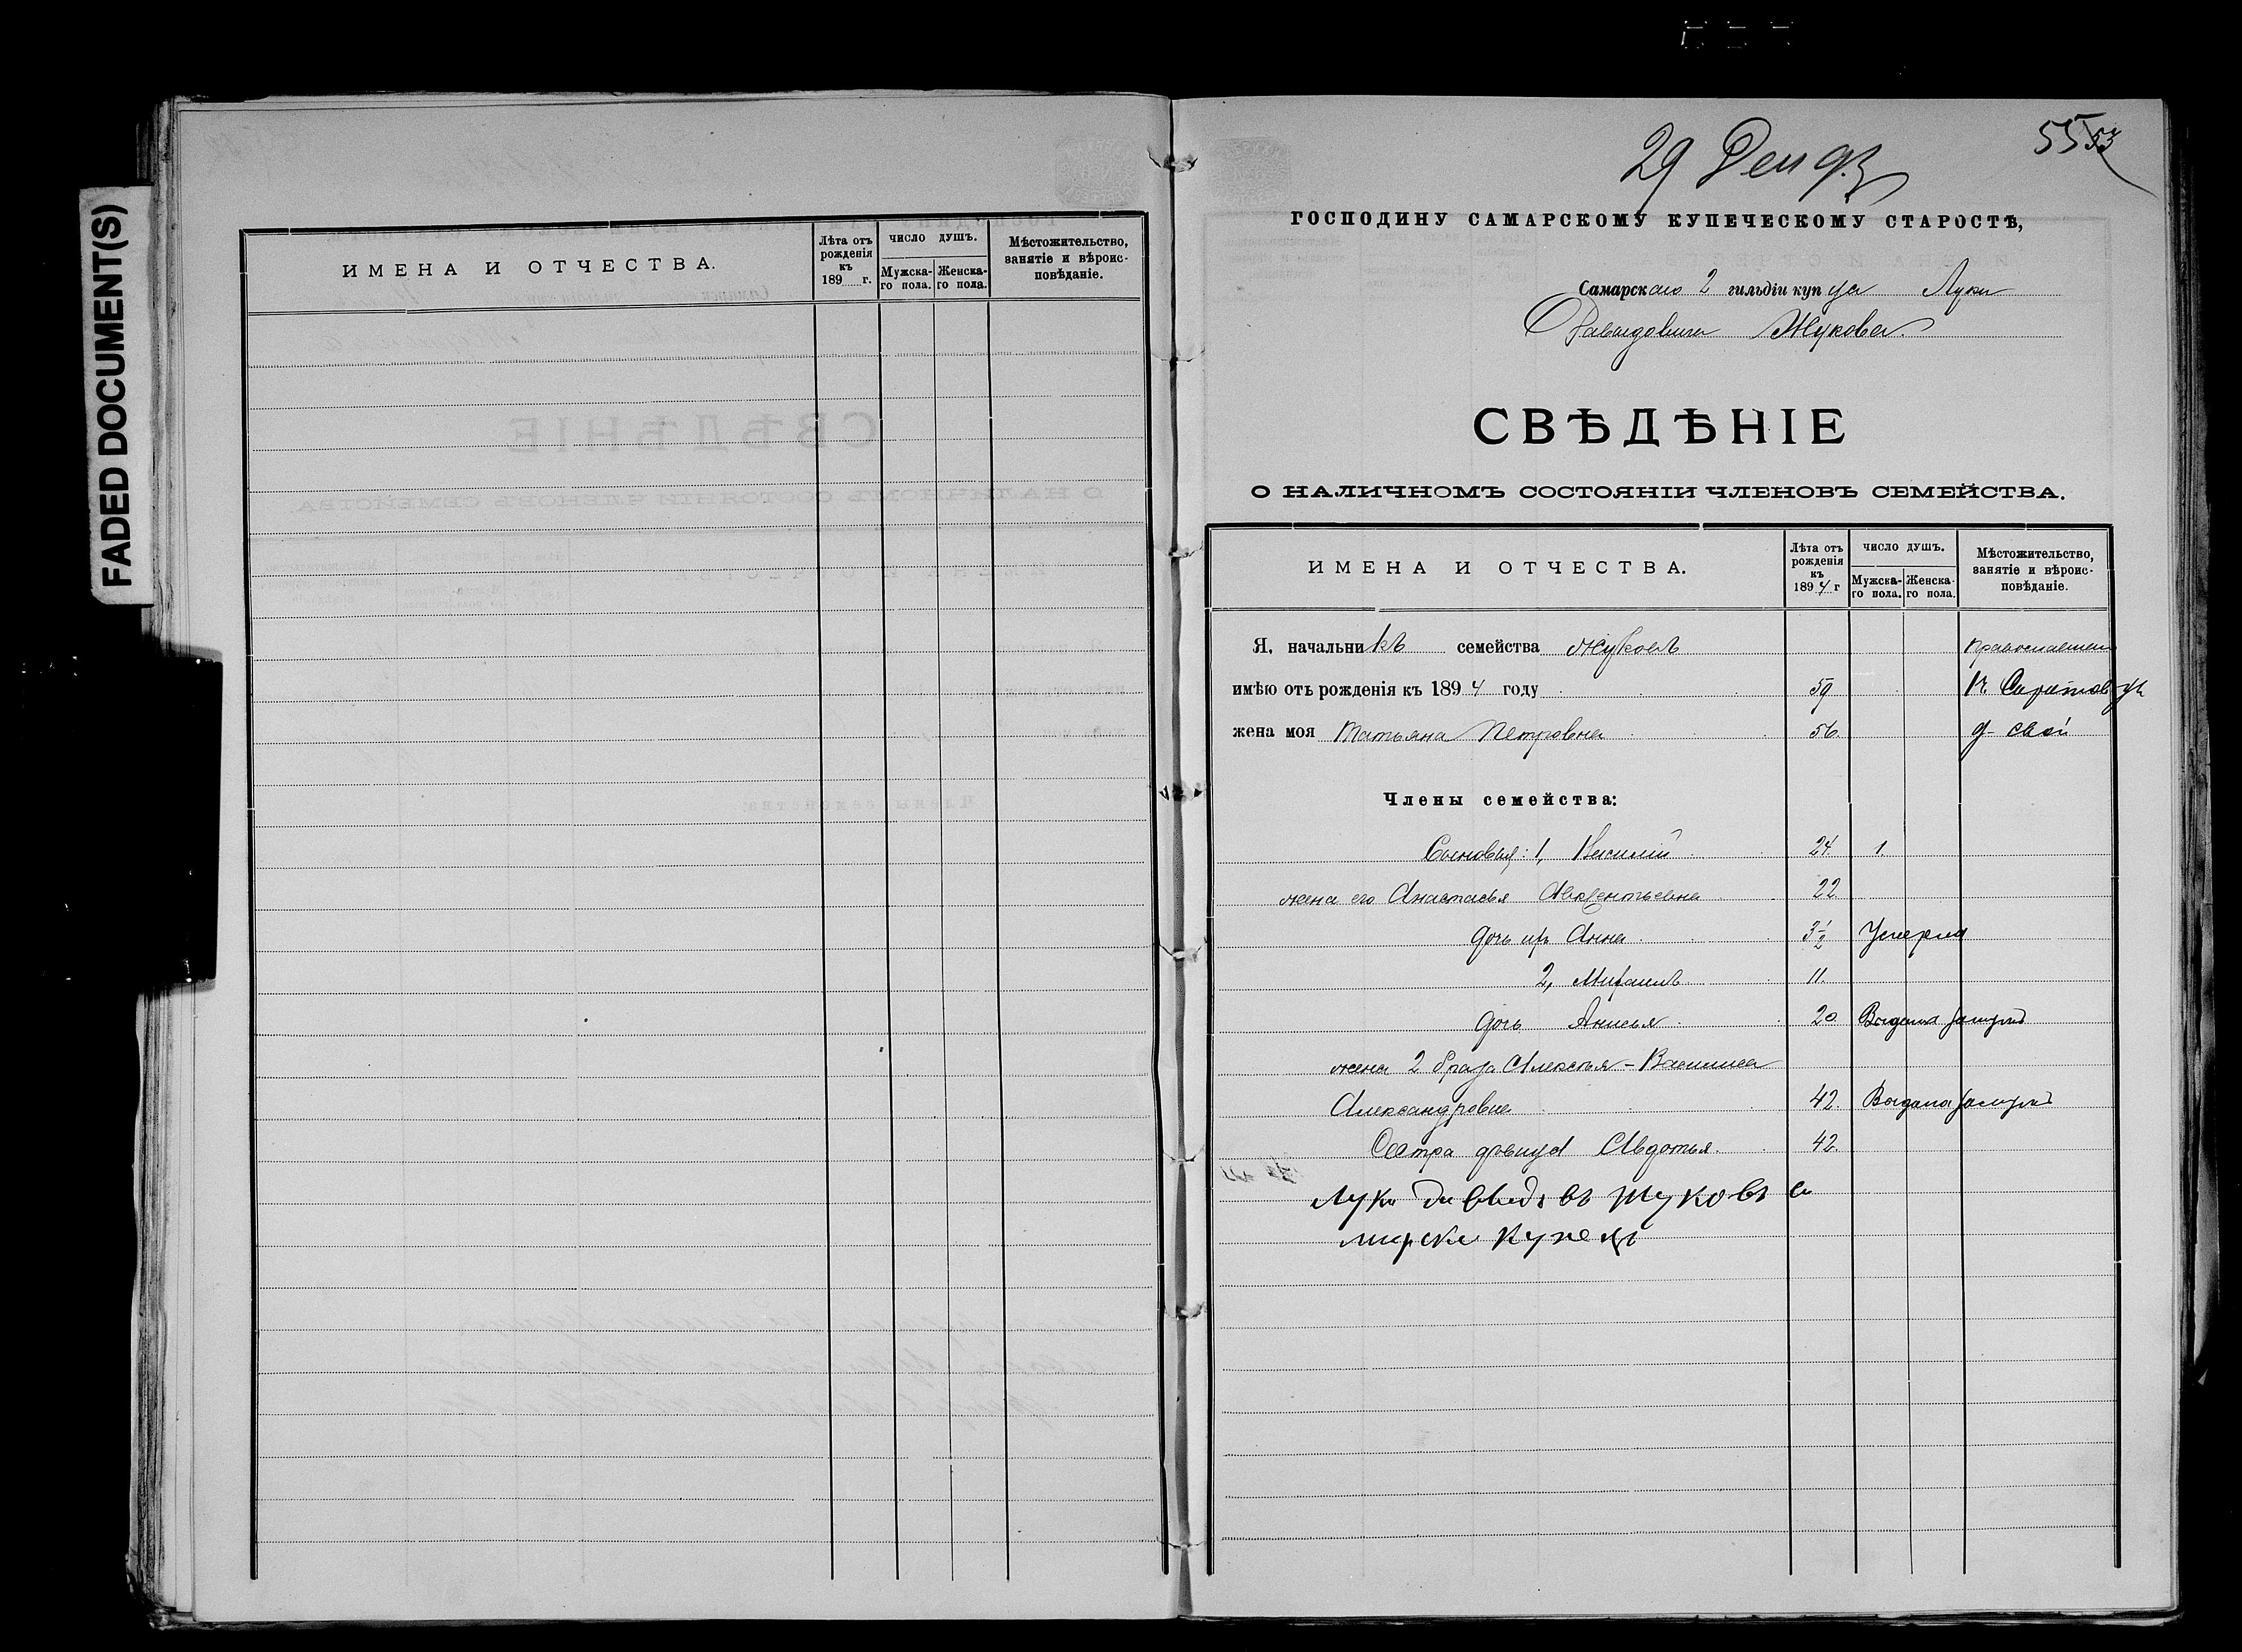 FADED DOCUMENT(S)
ИМЕНА И ОТЧЕСТВА.
Лѣта отъ рожденія къ 189 г.
ЧИСЛО ДУШЪ.
Мужска-го пола.
Женска-го пола.
Мѣстожительство, занятіе и вѣроис-повѣданіе.
29 Дек 93
55 53
ГОСПОДИНУ САМАРСКОМУ КУПЕЧЕСКОМУ СТАРОСТѢ,
Самарскаго 2 гильдіи купца Луки
Давыдовича Жукова
СВѢДѢНІЕ
О НАЛИЧНОМЪ СОСТОЯНІИ ЧЛЕНОВЪ СЕМЕЙСТВА.
ИМЕНА И ОТЧЕСТВА.
Лѣта отъ рожденія къ 1894 г
ЧИСЛО ДУШЪ.
Мужска-го пола.
Женска-го пола.
Мѣстожительство, занятіе и вѣроис-повѣданіе.
Я, начальникъ семейства Жуковъ
имѣю отъ рожденія къ 1894 году 59
жена моя Татьяна Петровна 56. д. свой
Члены семейства:
Сыновья: 1, Василий 24. 1.
жена его Анастасья Авксентьевна 22
дочь ихъ Анна 3 1/2 Умерла
2, Михаилъ 11.
дочь Анисья 20 Выдана замужъ
жена 2 брата Алексѣя - Василиса
Александровна 42. Выдана замужъ
Сестра дѣвица Авдотья. 42.
Лука Давыдовъ Жуковъ са
марски купецъ